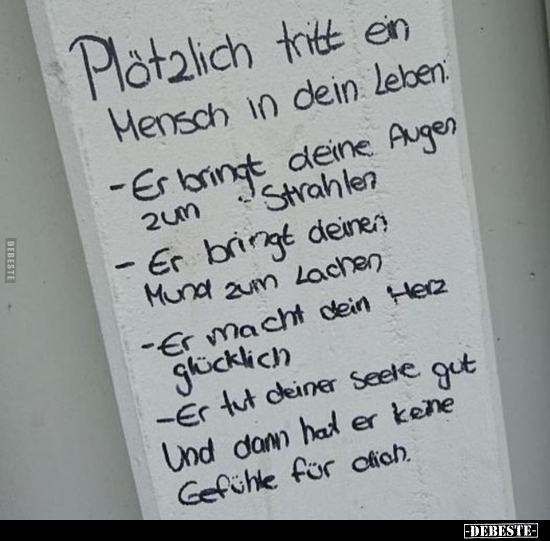 Plötzlich tritt ein
Mensch in dein Leben:
- Er bringt deine Augen
zum Strahlen
- Er bringt deinen
Mund zum Lachen
- Er macht dein Herz
glücklich
- Er tut deiner Seele gut
Und dann hat er keine
Gefühle für dich.
DEBESTE
-DEBESTE-